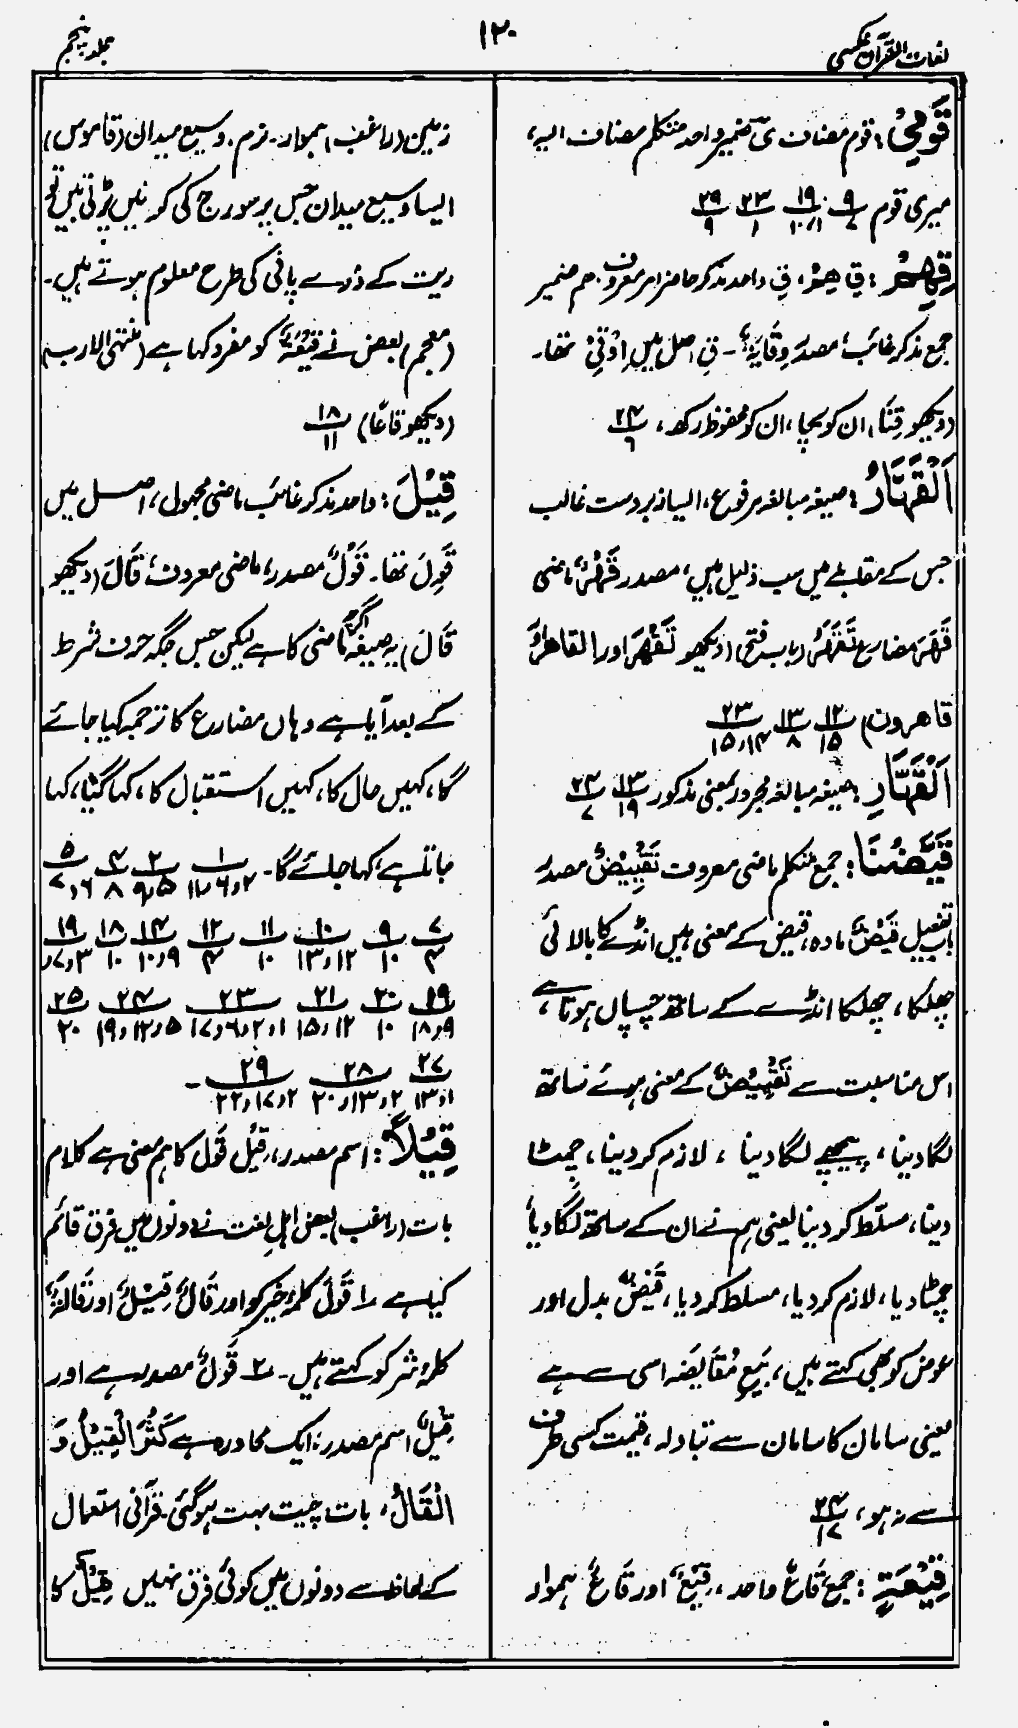 لغات القرآن عکسی
۱۲۰
جلد پنجم
قَوْمِیْ: قوم مضاف ی ضمیر واحد متکلم مضاف الیہ،
میری قوم ۹/۷ ۱۹/۱۰،۱ ۲۳/۱ ۲۹/۹
قِهِمْ: قِ هِمْ، قِ واحد مذکر حاضر امر معروف هم ضمیر
جمع مذکر غائب، مصدر وِقَایَةٌ۔ قِ اصل میں اِوْقِیْ تھا۔
(دیکھو قِنَا) ان کو بچا، ان کو محفوظ رکھ، ۲۴/۶
اَلْقَهَّارُ: صیغہ مبالغہ مرفوع، ایسا زبردست غالب
جس کے مقابلے میں سب ذلیل ہیں، مصدر قَهْرٌ ماضی
قَهَرَ مضارع تَقْهَرُ (باب فتح) (دیکھو تَقْهَرَ اور القاهرُ
قاهرون) ۱۲/۱۵ ۱۳/۸ ۲۳/۱۵،۱۴
اَلْقَهَّارِ: صیغہ مبالغہ مجرور بمعنی مذکور ۱۳/۱۹ ۲۴/۷
قَيَّضْنَا: جمع متکلم ماضی معروف تَقْيِيْضٌ مصدر
باب تفعیل قَيْضٌ مادہ، قیض کے معنی ہیں انڈے کا بالائی
چھلکا، چھلکا انڈے کے ساتھ چسپاں ہوتا ہے،
اس مناسبت سے تَقْيِيْضٌ کے معنی ہوئے ساتھ
لگا دینا، پیچھے لگا دینا، لازم کر دینا، چمٹا
دینا، مسلّط کر دینا یعنی ہم نے ان کے ساتھ لگا دیا
چمٹا دیا، لازم کر دیا، مسلط کر دیا، قَيْضٌ بدل اور
عوض کو بھی کہتے ہیں، بَیْعِ مُقَایَضَہ اسی سے ہے
یعنی سامان کا سامان سے تبادلہ، قیمت کسی طرف
سے نہ ہو، ۲۴/۱۷
قِيْعَةٍ: جمع، قَاعٌ واحد، قِيْعٌ اور قَاعٌ ہموار
زمین (راغب) ہموار۔ نرم۔ وسیع میدان (قاموس)
ایسا وسیع میدان جس پر سورج کی کرنیں پڑتی ہیں تو
ریت کے ذرے پانی کی طرح معلوم ہوتے ہیں۔
(معجم) بعض نے قِيْعَةٌ کو مفرد کہا ہے (منتہی الارب)
(دیکھو قاعًا) ۱۸/۱۱
قِيْلَ: واحد مذکر غائب ماضی مجہول، اصل میں
قُوِلَ تھا۔ قَوْلٌ مصدر، ماضی معروف، قَالَ (دیکھو
قَالَ) یہ صیغہ اگرچہ ماضی کا ہے لیکن جس جگہ حرف شرط
کے بعد آیا ہے وہاں مضارع کا ترجمہ کیا جائے
گا، کہیں حال کا، کہیں استقبال کا، کہا گیا، کہا
جاتا ہے، کہا جائے گا۔ ۱/۱۱،۶،۲ ۲/۹،۵ ۴/۸ ۵/۷،۶
۷/۴ ۹/۱۰ ۱۰/۱۳،۱۲ ۱۱/۱۰ ۱۲/۴ ۱۴/۱۰،۹ ۱۸/۱۰ ۱۹/۷،۳
۱۹/۱۸،۹ ۲۰/۱۰ ۲۱/۱۵،۱۲ ۲۳/۱۷،۶،۲،۱ ۲۴/۱۹،۱۲،۵ ۲۵/۲۰
۲۷/۱۳،۱ ۲۸/۲۰،۱۳،۲ ۲۹/۲۲،۱۷،۲ ۔
قِيْلاً: اسم مصدر، قیل قول کا ہم معنی ہے کلام
بات (راغب) بعض اہلِ لغت نے دونوں میں فرق قائم
کیا ہے ۱ قَوْلٌ کلمۂ خیر کو اور قَالٌ قِيْلٌ اور قَالَةٌ
کلمۂ شر کو کہتے ہیں۔ ۲ قَوْلٌ مصدر ہے اور
قِيْلٌ اسم مصدر، ایک محاورہ ہے كَثُرَ الْقِيْلُ وَ
الْقَالُ، بات چیت بہت ہو گئی۔ قرآنی استعمال
کے لحاظ سے دونوں میں کوئی فرق نہیں قِيْلٌ کا